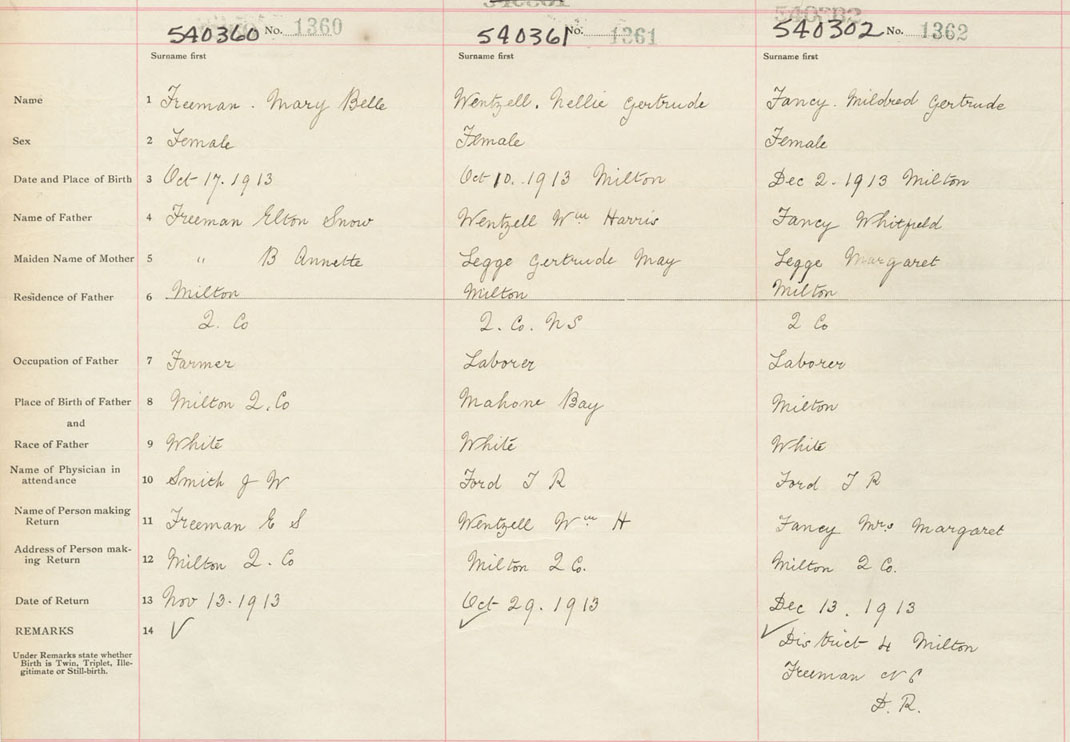 540360 No. 1360 540361 No. 1361 540302 No. 1362
Surname first Surname first Surname first
Name 1 Freeman. Mary Belle Wentzell. Nellie Gertrude Fancy. Mildred Gertrude
Sex 2 Female Female Female
Date and Place of Birth 3 Oct 17. 1913 Oct 10. 1913 Milton Dec 2. 1913 Milton
Name of Father 4 Freeman Elton Snow Wentzell Wm Harris Fancy Whitfield
Maiden Name of Mother 5 " B Annette Legge Gertrude May Legge Margaret
Residence of Father 6 Milton Milton Milton
Q. Co Q. Co. NS Q Co
Occupation of Father 7 Farmer Laborer Laborer
Place of Birth of Father 8 Milton Q. Co Mahone Bay Milton
and
Race of Father 9 White White White
Name of Physician in
attendance 10 Smith J W Ford T R Ford T R
Name of Person making
Return 11 Freeman E S Wentzell Wm H Fancy Mrs Margaret
Address of Person mak-
ing Return 12 Milton Q. Co Milton Q Co. Milton Q Co.
Date of Return 13 Nov 13. 1913 Oct 29. 1913 Dec 13. 1913
REMARKS 14 ✓ ✓ ✓ District 4 Milton
Under Remarks state whether
Birth is Twin, Triplet, Ille-
gitimate or Still-birth.
Freeman
D. R.